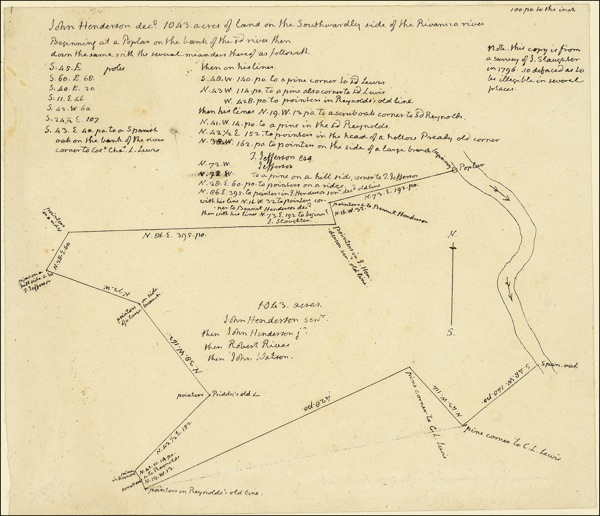 100. po. to the inch
John Henderson dec.d 1043. acres of land on the Southwardly side of the Rivanna river
Beginning at a Poplar on the bank of the sd river then
down the same with the several meanders thereof as followeth
S. 45. E. poles
S. 60. E. 68.
S. 40. E. 20
S. 11. E. 46
S. 42. W. 60
S. 24¼ E. 107
S. 43. E. 40. po. to a Spanish
oak on the bank of the river
corner to Cha.s L. Lewis
then on his lines.
S. 48. W. 140. po. to a pine corner to sd Lewis
N. 43 W. 114. po. to a pine also corner to sd Lewis
W. 428. po. to pointers in Reynolds's old line
then his lines N. 19. W. 13. po to a scrub oak corner to sd Reynolds.
N. 41. W. 14. po. to a pine in the sd Reynolds
N. 42½ E. 152. to pointers in the head of a hollow Priddy old corner
N. 38. W. 162. po. to pointers on the side of a large branch
T. Jefferson esq
N. 72. W. Jefferson
N. 72. W. to a pine on a hill side, corner to T. Jefferson
N. 28. E. 60. po to pointers on a ridge
N. 86. E. 395. to pointers in J. Henderson sen.r dec.d old line
with his line N. 16. W. 32. to pointers cor-
ner to Bennet Henderson dec.d
then with his lines N. 73. E. 192 to beginng.
J. Slaughter.
Note. this copy is from
a survey of J. Slaughter
in 1796. so defaced as to
be illegible in several
places.
Beginning Poplar
N. 73. E. 192. po.
pointers to Bennet Henderson
N. 16. W. 32.
pointers in J. Hen-
derson sen.r old line
N. 86. E. 395. po.
pointers
on a ridge
N. 28. E. 60
pine on a
hill side to
T. Jefferson
N. 72. W.
pointers on side
of a large branch
N. 38. W. 162
pointers Priddy's old L
N. 42½ E. 152.
N. 41. W. 14. po
to Reynolds
N. 19. W. 13.
pointers in Reynolds's old line.
428. po.
pine corner to C. L. Lewis
N. 43. W. 114
pine corner to C. L. Lewis
S. 48. W. 140. po
Span. oak
N.
S.
1043. acres.
John Henderson sen.r
then John Henderson j.r
then Robert Rives
then John Watson.